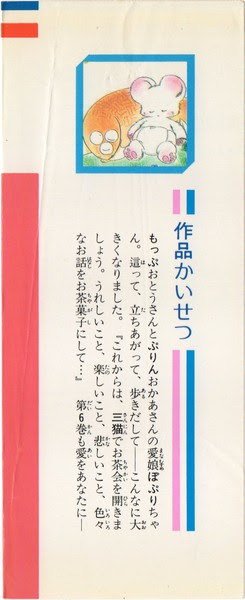 作品かいせつ
もっぷおとうさんとぷりんおかあさんの愛娘ぽぷりちゃ
ん。這って、立ちあがって、歩きだして──こんなに大
きくなりました。『これからは、三猫でお茶会を開きま
しょう。うれしいこと、楽しいこと、悲しいこと、色々
なお話をお茶菓子にして…』　第6巻も愛をあなたに──